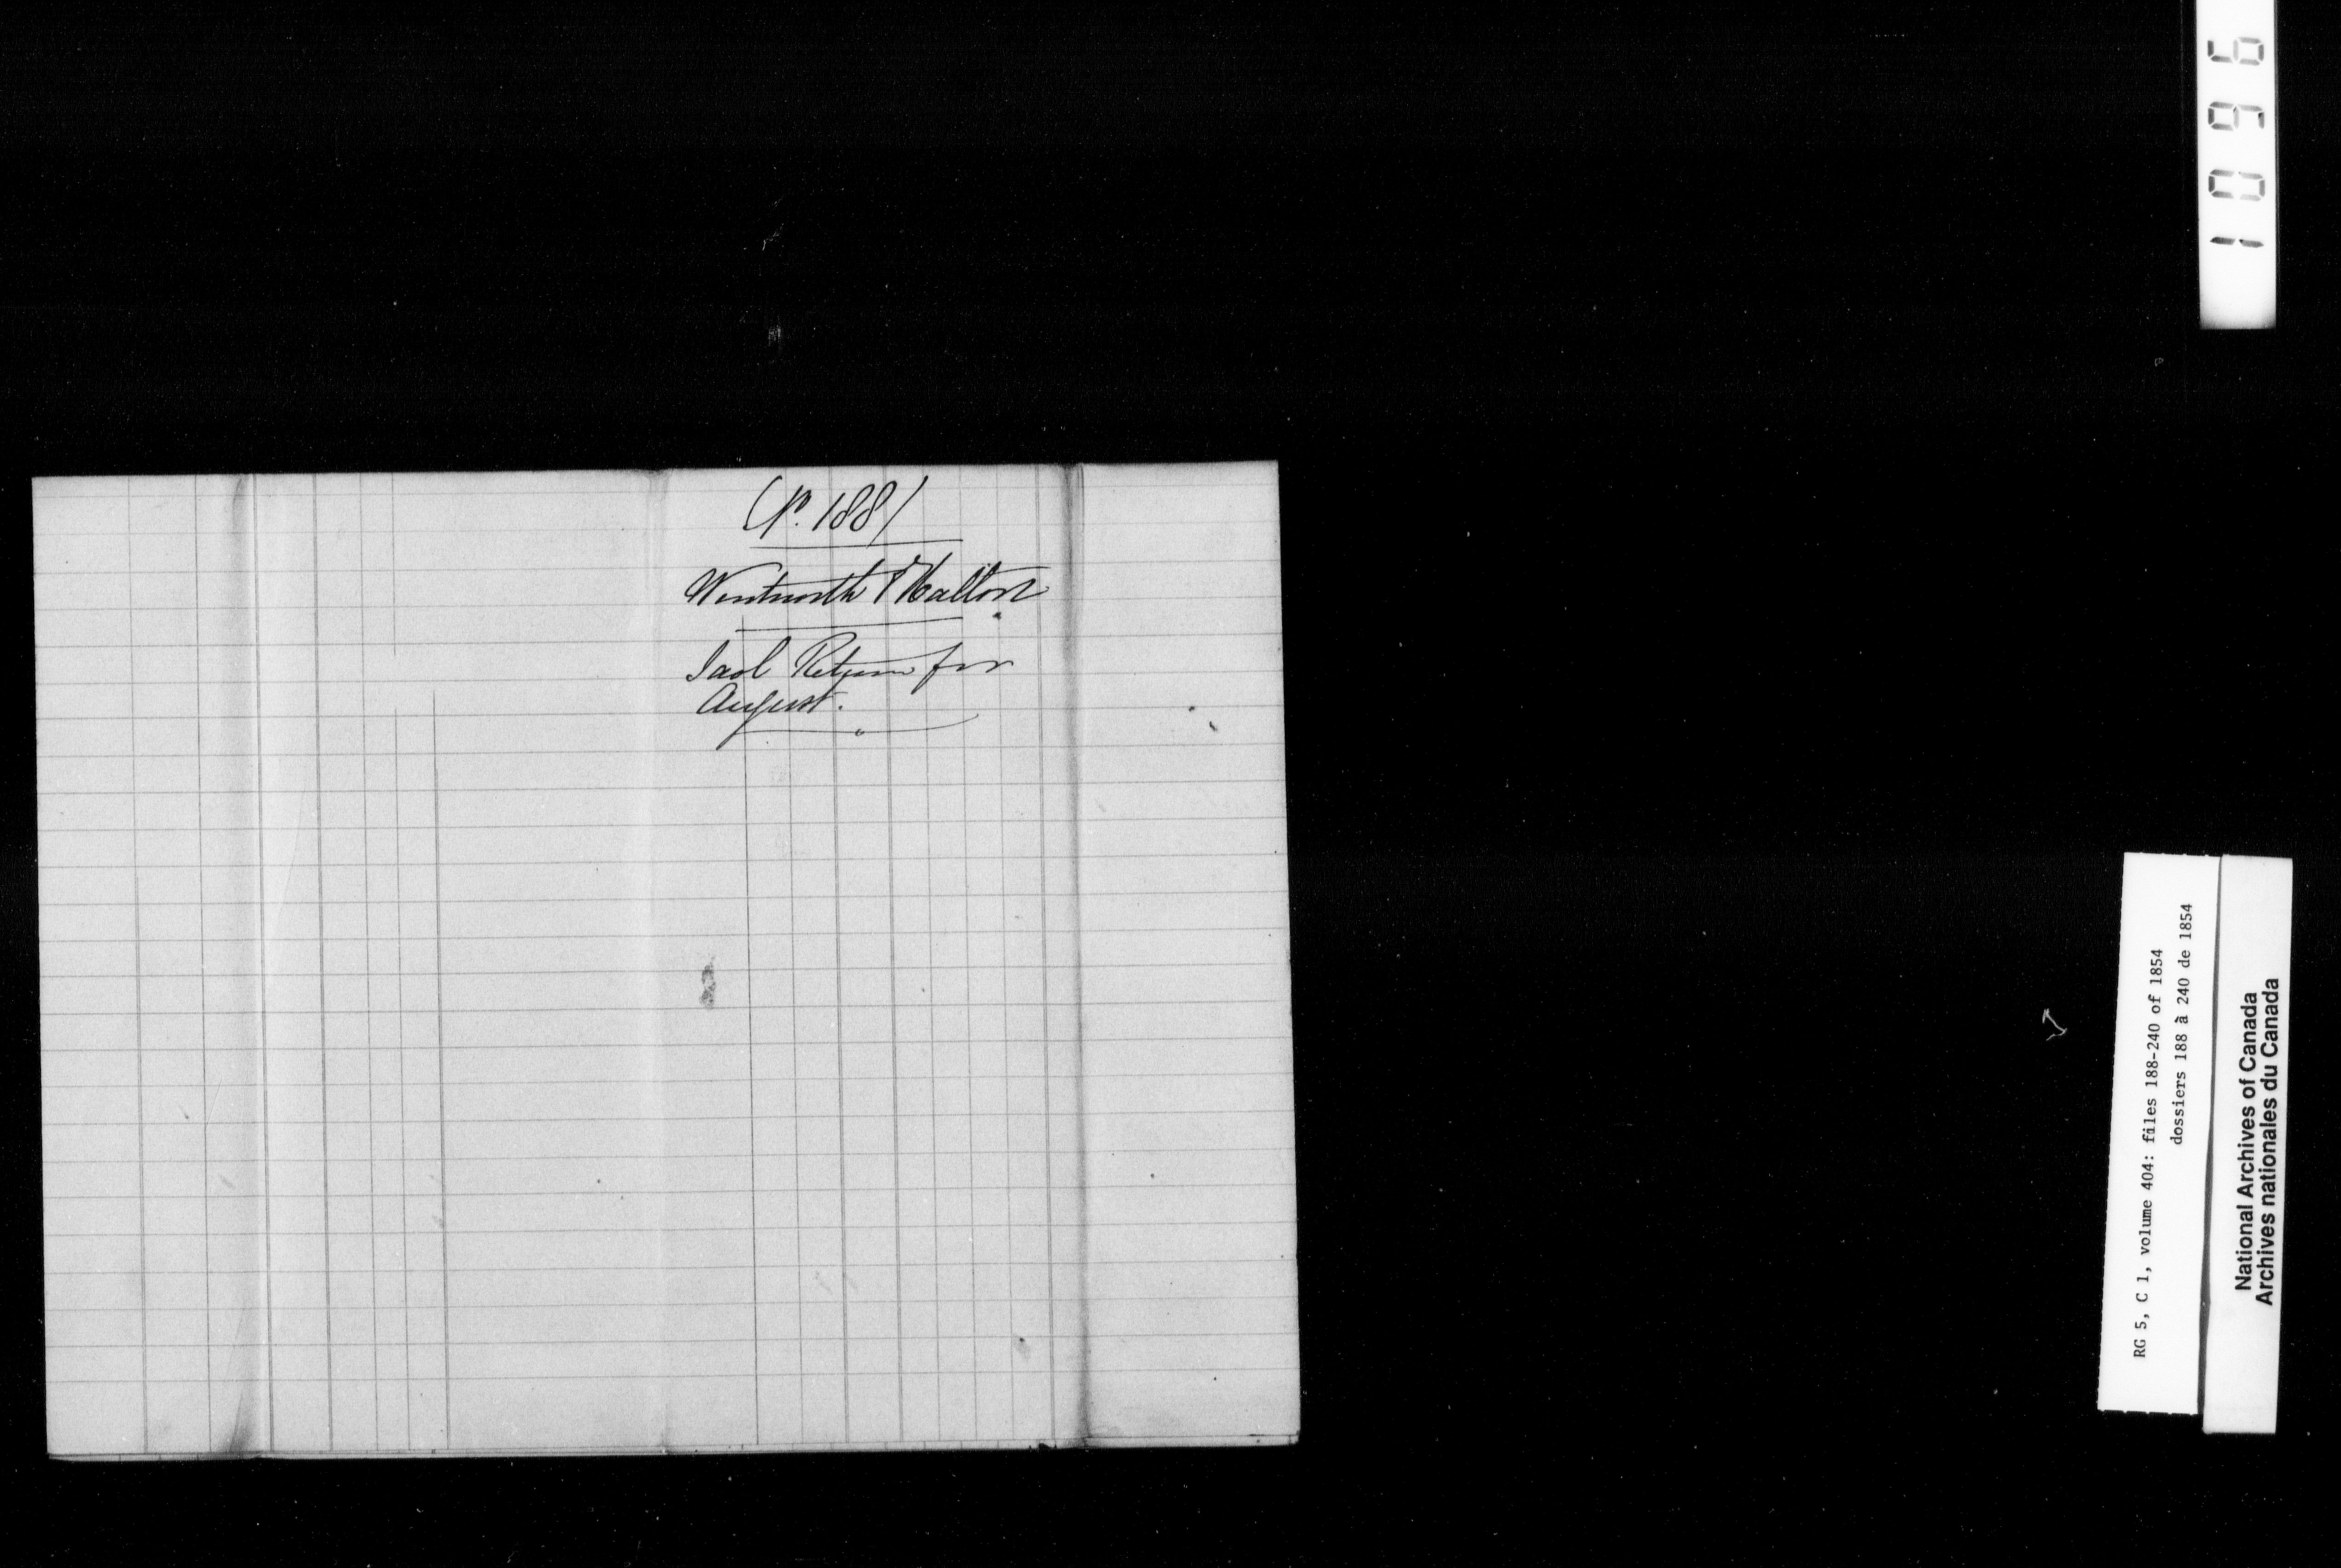 (P. 188)
Wentworth & Halton
Gaol Return for
August.
1096
RG 5, C 1, volume 404: files 188-240 of 1854
dossiers 188 à 240 de 1854
National Archives of Canada
Archives nationales du Canada